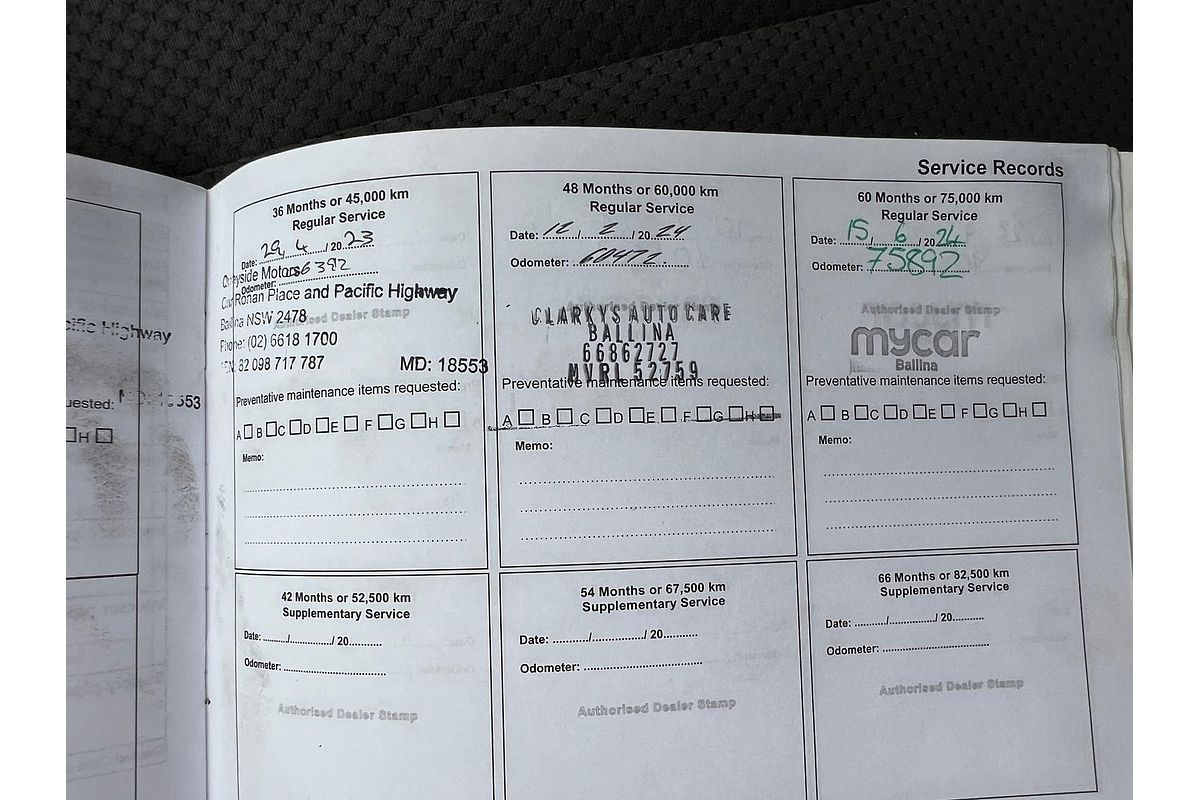 Service Records
36 Months or 45,000 km
Regular Service
Date: 29, 4 / 20 23
Odometer:
Motors
Ronan Place and Pacific Highway
NSW 2478
Authorised Dealer Stamp
Phone: (02) 6618 1700
82 098 717 787 MD: 18553
Preventative maintenance items requested:
A B C D E F G H
Memo:
48 Months or 60,000 km
Regular Service
Date: 12 / 2 / 20 24
Odometer: 60472
Authorised Dealer Stamp
CLARKYS AUTO CARE
BALLINA
66862727
MVRL 52759
Preventative maintenance items requested:
A B C D E F G H
Memo:
60 Months or 75,000 km
Regular Service
Date: 15, 6 / 20 24
Odometer: 75892
Authorised Dealer Stamp
mycar
Ballina
Preventative maintenance items requested:
A B C D E F G H
Memo:
42 Months or 52,500 km
Supplementary Service
Date: ........../............../ 20..........
Odometer: ................................
Authorised Dealer Stamp
54 Months or 67,500 km
Supplementary Service
Date: ........../............../ 20..........
Odometer: ................................
Authorised Dealer Stamp
66 Months or 82,500 km
Supplementary Service
Date: ........../............../ 20..........
Odometer: ................................
Authorised Dealer Stamp
Highway
H